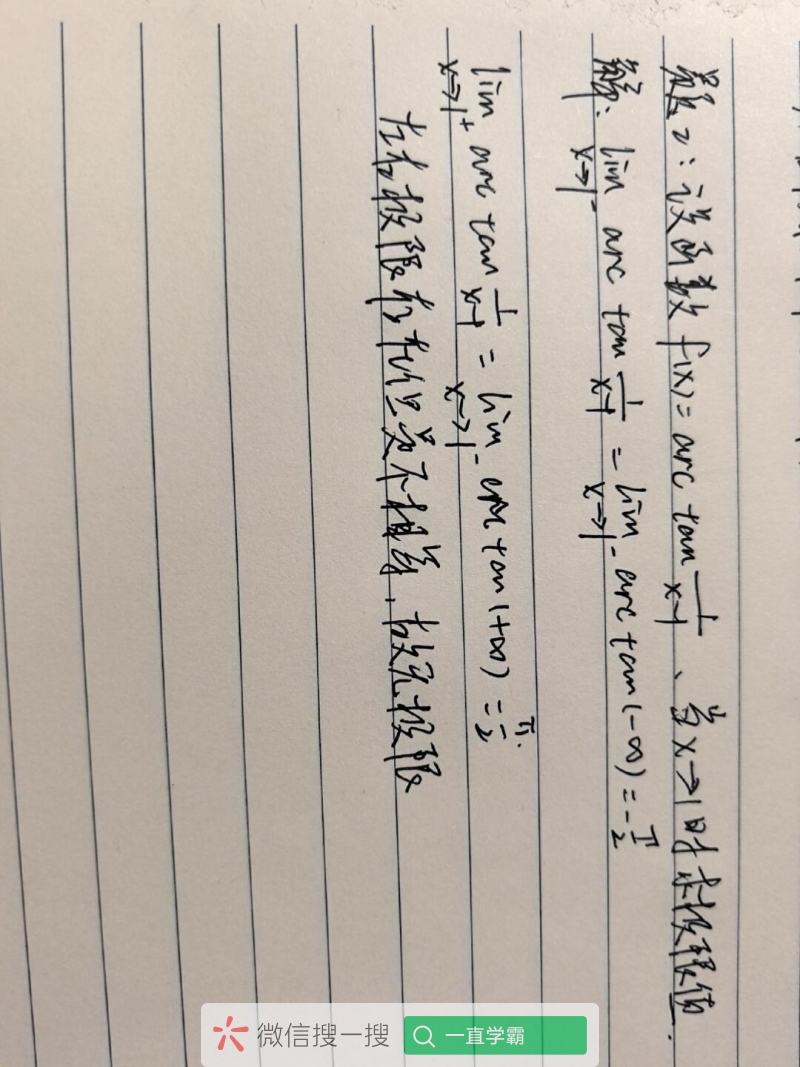 题2：设函数 f(x) = arc tan 1/(x-1)、当x→1时求极限值.
解: lim x→1⁻ arc tan 1/(x-1) = lim x→1⁻ arc tan(-∞) = -π/2
lim x→1⁺ arc tan 1/(x-1) = lim x→1⁻ arc tan(+∞) = π/2.
左右极限存在但是不相等，故无极限
微信搜一搜
一直学霸